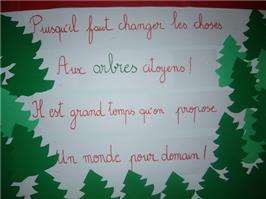 Puisqu'il faut changer les choses
Aux arbres citoyens !
Il est grand temps qu'on propose
Un monde pour demain !